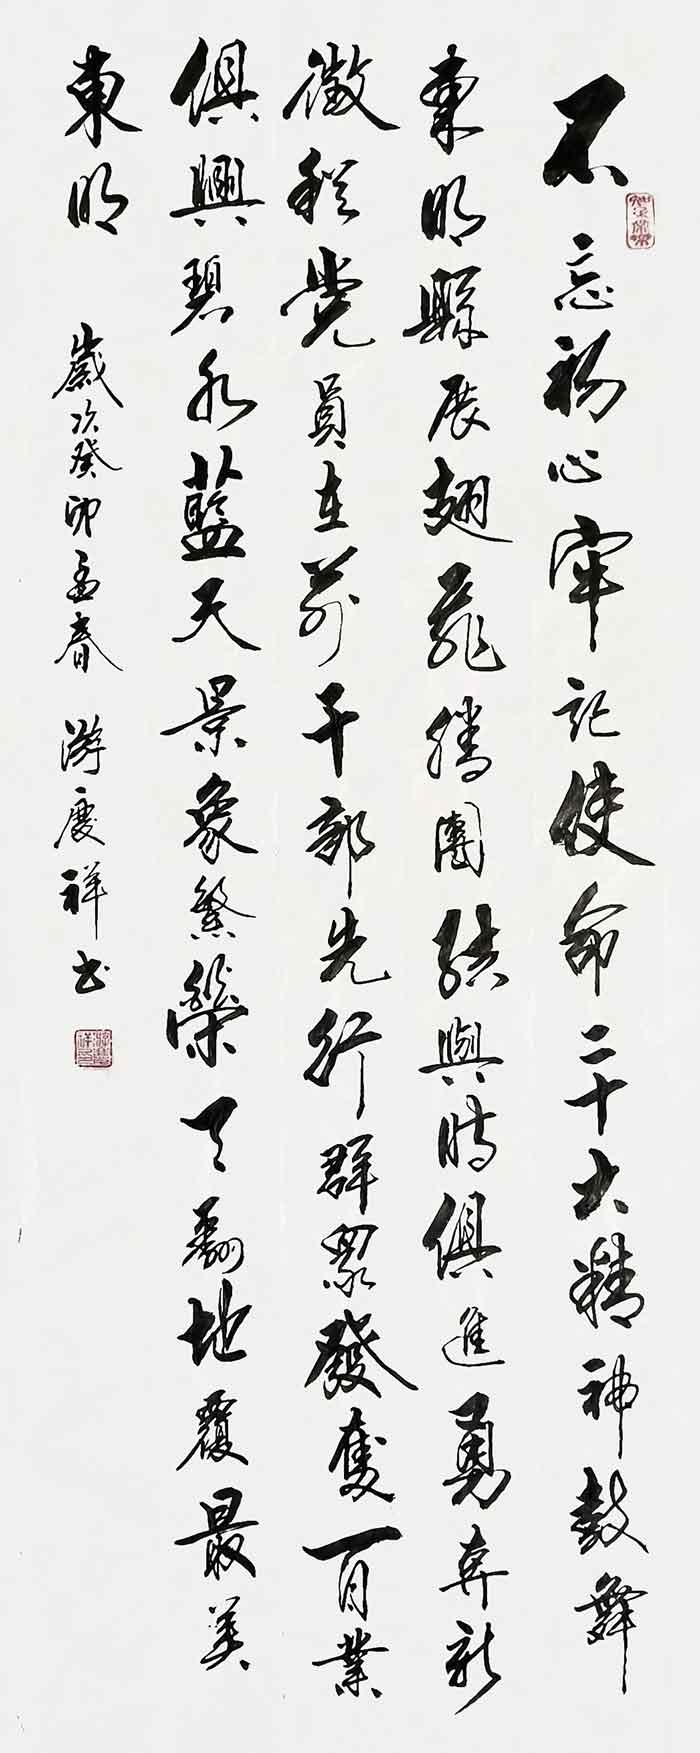 不忘初心牢記使命二十大精神鼓舞
東明縣展翅飛騰團結與時俱進勇奔新
徵程黨員在前干部先行群眾發奮百業
俱興碧水藍天景象繁榮天翻地覆最美
東明
歲次癸卯孟春 游慶祥书